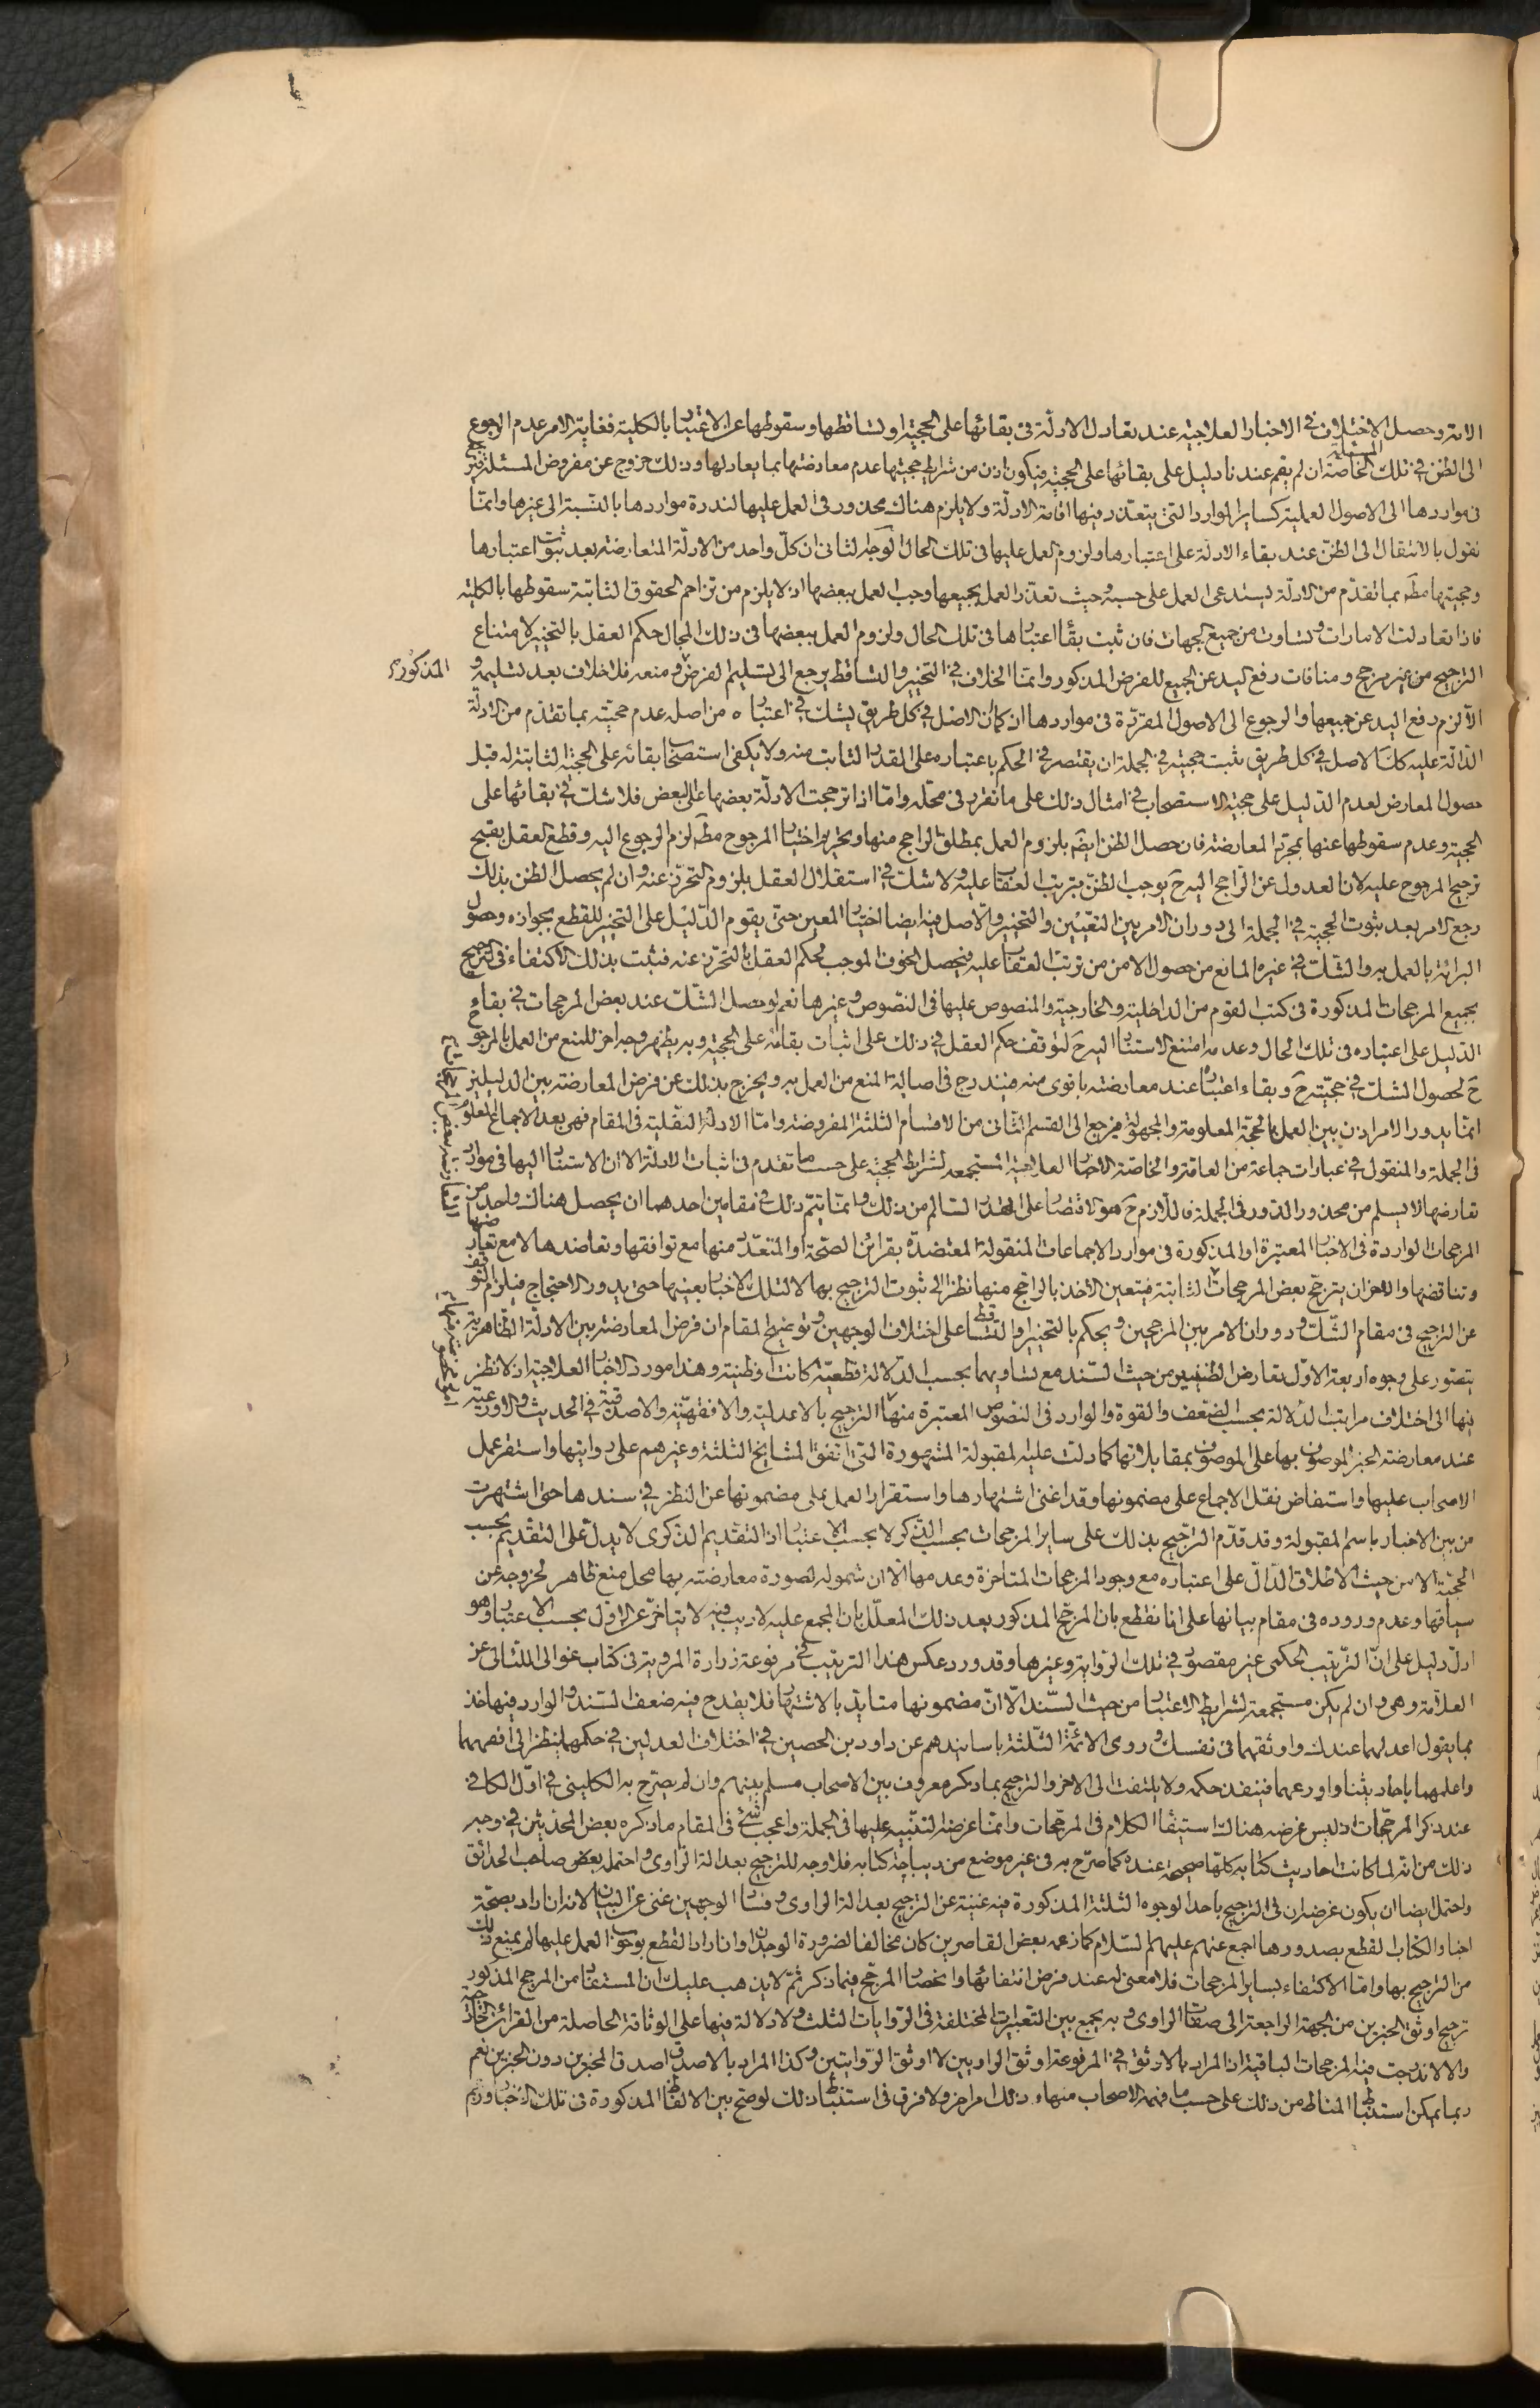 الامة وحصل الاختلاف في الاخبار العلاجية عند تعادل الادلة في بقائها على الحجية او تساقطها وسقوطها عن الاعتبار بالكلية فغاية الامر عدم الرجوع
الى الظن في تلك المسئلة الخاصة ان لم يقم عندنا دليل على بقائها على الحجية فيكون اذن من شرايط حجيتها عدم معارضتها بما يعادلها وذلك خروج عن مفروض المسئلة فيرجع
في مواردها الى الاصول العملية كساير الموارد التي يتعذر فيها اقامة الادلة ولا يلزم هناك محذور في العمل عليها لندرة مواردها بالنسبة الى غيرها وانما
نقول بالانتقال الى الظن عند بقاء الادلة على اعتبارها ولزوم العمل عليها في تلك الحال الوجه الثاني ان كل واحد من الادلة المتعارضة بعد ثبوت اعتبارها
وحجيتها مط بما تقدم من الادلة يستدعى العمل على حسبه وحيث تعذر العمل بجميعها وجب العمل ببعضها اذ لا يلزم من تزاحم الحقوق الثابتة سقوطها بالكلية
فاذا تعادلت الامارات وتساوت من جميع الجهات فان ثبت بقاء اعتبارها في تلك الحال ولزوم العمل ببعضها في ذلك المجال حكم العقل بالتخيير لامتناع
الترجيح من غير مرجح ومنافات رفع اليد عن الجميع للفرض المذكور وانما الخلاف في التخيير والتساقط يرجع الى تسليم الفرض ومنعه فلا خلاف بعد تسليمه و
المذكور
الا لزم رفع اليد عن جميعها والرجوع الى الاصول المقررة في مواردها ان كان الاصل في كل طريق يشك في اعتباره من اصله عدم حجيته بما تقدم من الادلة
الدالة عليه كان الاصل في كل طريق ثبت حجيته في الجملة ان يقتصر في الحكم باعتباره على القدر الثابت منه ولا يكفى استصحاب بقائه على الحجية الثابتة له قبل
حصول المعارض لعدم الدليل على حجية الاستصحاب في امثال ذلك على ما تقرر في محله واما اذا ترجحت الادلة بعضها على البعض فلا شك في بقائها على
الحجية وعدم سقوطها عنها بمجرد المعارضة فان حصل الظن ايضا بلزوم العمل بمطلق الراجح منها وتحريم اختيار المرجوح مط لزم الرجوع اليه وقطع العقل بقبح
ترجيح المرجوح عليه لان العدول عن الراجح اليه ح يوجب الظن بترتب العقاب عليه ولا شك في استقلال العقل بلزوم التحرز عنه وان لم يحصل الظن بذلك
رجع الامر بعد ثبوت الحجية في الجملة الى دوران الامر بين التعيين والتخيير والاصل فيه ايضا اختيار المعين حتى يقوم الدليل على التخيير للقطع بجوازه وحصول
البرائة بالعمل به والشك في غيره المانع من حصول الامن من ترتب العقاب عليه فيحصل الخوف الموجب لحكم العقل بالتحرز عنه فثبت بذلك الاكتفاء في الترجيح
بجميع المرجحات المذكورة في كتب القوم من الداخلية والخارجية والمنصوص عليها في النصوص وغيرها نعم لو حصل الشك عند بعض المرجحات في بقاء
الدليل على اعتباره في تلك الحال وعدمه امتنع الاستناد اليه ح لتوقف حكم العقل في ذلك على اثبات بقائه على الحجية وبه يظهر وجه اخر للمنع من العمل بالمرجوح
ح لحصول الشك في حجيته ح وبقاء اعتباره عند معارضته باقوى منه فيندرج في اصالة المنع من العمل به ويخرج بذلك عن فرض المعارضة بين الدليلين
انما يدور الامر اذن بين العمل بالحجة المعلومة والمجهولة فيرجع الى القسم الثاني من الاقسام الثلثة المفروضة واما الادلة النقلية في المقام فهي بعد الاجماع المعلوم
في الجملة والمنقول في عبارات جماعة من العامة والخاصة الاخبار العلاجية المستجمعة لشرايط الحجية على حسب ما تقدم في اثبات الادلة الا ان الاستناد اليها في موارد
تعارضها لا يسلم من محذور الدور في الجملة فاللازم ح هو الاقتصار على القدر السالم من ذلك وانما يتم ذلك في مقامين احدهما ان يحصل هناك واحد من
المرجحات الواردة في الاخبار المعتبرة او المذكورة في موارد الاجماعات المنقولة المعتضدة بقرائن الصحة او المتعدد منها مع توافقها وتعاضدها لا مع تعارضها
وتناقضها والاخر ان يترجح بعض المرجحات الثابتة فيتعين الاخذ بالراجح منها نظرا الى ثبوت الترجيح بها لا لتلك الاخبار بعينها حتى يدور الاحتجاج فيلزم التوقف
عن الترجيح في مقام الشك ودوران الامر بين المرجحين ويحكم بالتخيير او التساقط على اختلاف الوجهين وتوضيح المقام ان فرض المعارضة بين الادلة الظاهرية
يتصور على وجوه اربعة الاول تعارض الظنيين من حيث السند مع تساويهما بحسب الدلالة قطعية كانت او ظنية وهذا مورد الاخبار العلاجية اذ لا نظر
فيها الى اختلاف مراتب الدلالة بحسب الضعف والقوة والوارد في النصوص المعتبرة منها الترجيح بالاعدلية والافقهية والاصدقية في الحديث والاورعية
عند معارضة الخبر الموصوف بها على الموصوف بمقابلاتها كما دلت عليه المقبولة المشهورة التي اتفق المشايخ الثلثة وغيرهم على روايتها واستقر عمل
الاصحاب عليها واستفاض نقل الاجماع على مضمونها وقد اغنى اشتهارها واستقرار العمل على مضمونها عن النظر في سندها حتى اشتهرت
من بين الاخبار باسم المقبولة وقد قدم الترجيح بذلك على ساير المرجحات بحسب الذكر لا بحسب الاعتبار اذ التقديم الذكرى لا يدل على التقديم بحسب
الحجية الا من حيث الاطلاق الدال على اعتباره مع وجود المرجحات المتاخرة وعدمها الا ان شموله لصورة معارضته بها محل منع ظاهر لخروجه عن
سياقها وعدم وروده في مقام بيانها على انا نقطع بان المرجح المذكور بعد ذلك المعلل بان المجمع عليه لا ريب فيه لا يتاخر عن الاول بحسب الاعتبار وهو
ادل دليل على ان الترتيب الحكمى غير مقصود في تلك الرواية وغيرها وقد ورد عكس هذا الترتيب في مرفوعة زرارة المروية في كتاب غوالى اللئالى عن
العلامة وهي وان لم يكن مستجمعة لشرايط الاعتبار من حيث السند الا ان مضمونها متايد بالاشتهار فلا يقدح فيه ضعف السند والوارد فيها خذ
بما يقول اعدلهما عندك واوثقهما في نفسك وروى الائمة الثلثة باسانيدهم عن داود بن الحصين في اختلاف العدلين في حكمهما ينظر الى افقههما
واعلمهما باحاديثنا واورعهما فينفذ حكمه ولا يلتفت الى الاخر والترجيح بما ذكر معروف بين الاصحاب مسلم بينهم وان لم يصرح به الكليني في اول الكافي
عند ذكر المرجحات اذ ليس غرضه هناك استيفاء الكلام في المرجحات وانما غرضه التنبيه عليها في الجملة واعجب شئ في المقام ما ذكره بعض المحدثين في وجه
ذلك من انه لما كانت احاديث كتابه كلها صحيحة عنده كما صرح به في غير موضع من ديباجة كتابه فلا وجه للترجيح بعدالة الراوى واحتمله بعض صاحب الحدائق
واحتمل ايضا ان يكون غرضه ان في الترجيح باحد الوجوه الثلثة المذكورة فيه غنية عن الترجيح بعدالة الراوى وفساد الوجهين غنى عن البيان لانه ان اراد بصحة
اخبار الكتاب القطع بصدورها اجمع عنهم عليهم السلام كما زعمه بعض القاصرين كان مخالفا لضرورة الوجدان وان اراد القطع بوجوب العمل عليها لم يمنع ذلك
من الترجيح بها واما الاكتفاء بساير المرجحات فلا معنى له عند فرض انتفائها وانحصار المرجح فيما ذكر ثم لا يذهب عليك ان المستفاد من المرجح المذكور
ترجيح اوثق الخبرين من الجهة الراجعة الى صفات الراوى وبه يجمع بين التعبيرات المختلفة في الروايات الثلث ولا دلالة فيها على الوثاقة الحاصلة من القرائن الخارجة
والا لاندرجت فيه المرجحات الباقية اذ المراد بالاوثق في المرفوعة اوثق الراويين لا اوثق الروايتين وكذا المراد بالاصدق اصدق المخبرين دون الخبرين نعم
ربما يمكن استنباط المناط من ذلك على حسب ما فهمه الاصحاب منها وذلك امر اخر ولا فرق في استنباط ذلك لو صح بين الالفاظ المذكورة في تلك الاخبار ولم